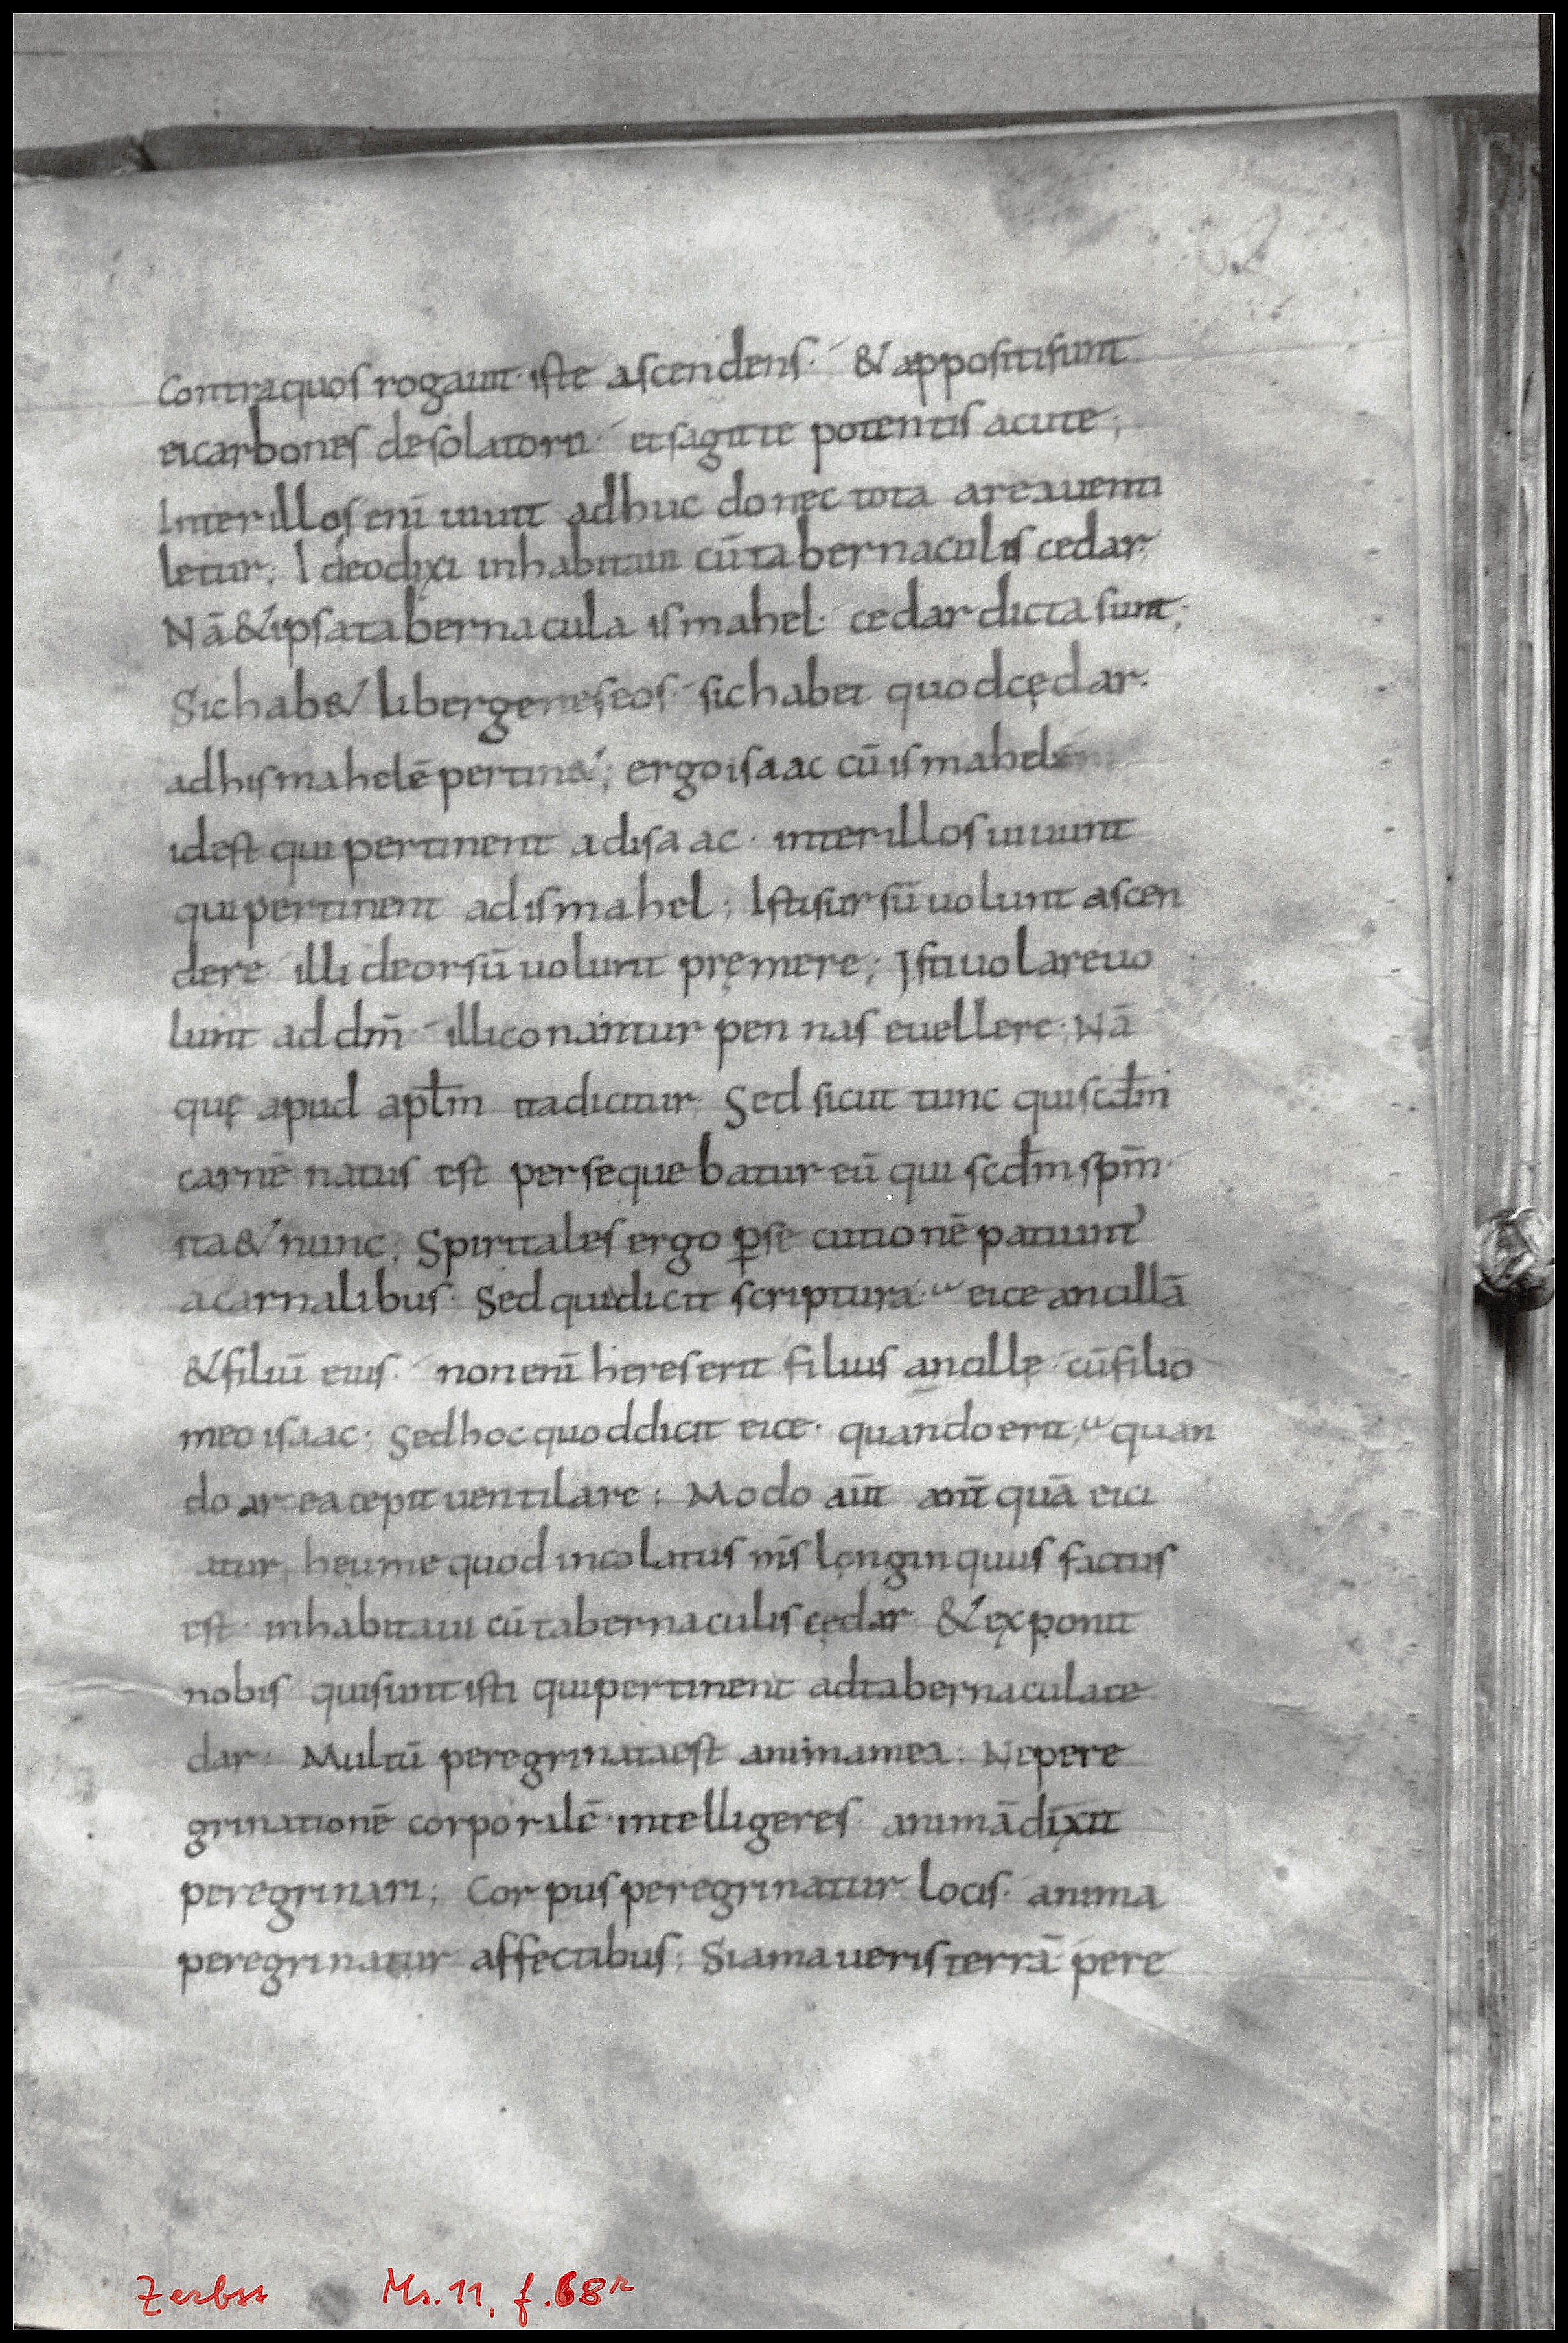 Contra quos rogauit iste ascendens· & appositi sunt
ei carbones desolatorii· et sagitte potentis acute;
Inter illos enī uiuit adhuc donec tota area uenti
letur; Ideo dixi inhabitaui cū tabernaculis cedar;
Nā & ipsa tabernacula ismahel· cedar dicta sunt;
Sic hab& liber geneseos· sic habet quod cędar·
ad hismahelē pertin&; ergo isaac cū ismahel
id est qui pertinent ad isaac· inter illos uiuunt
qui pertinent ad ismahel; Isti sursū uolunt ascen
dere illi deorsū uolunt pręmere; Isti uolare uo
lunt ad dm̄ illi conantur pennas euellere; Nā
quę apud apł̄m ita dicitur; Sed sicut tunc qui scd̄m
carnē natus est persequebatur eū qui scd̄m spm̄·
ita & nunc; Spiritales ergo ꝑsecutionē patiunt̛
a carnalibus· Sed quid dicit scriptura· eice ancillā
& filiū eius· non enī heres erit filius ancillę cū filio
meo isaac; Sed hoc quod dicit eice· quando erit; quan
do area cepit uentilare; Modo aūt ant̄ quā eici
atur, heu me quod incolatus m̄s longinquus factus
est· inhabitaui cū tabernaculis cędar & exponit
nobis qui sunt isti qui pertinent ad tabernacula ce
dar· Multū peregrinata est anima mea· Ne pere
grinationē corporalē intelligeres animā dixit
peregrinari; Corpus peregrinatur locis· anima
peregrinatur affectibus; Si amaueris terrā pere
Zerbst Ms. 11, f. 68r